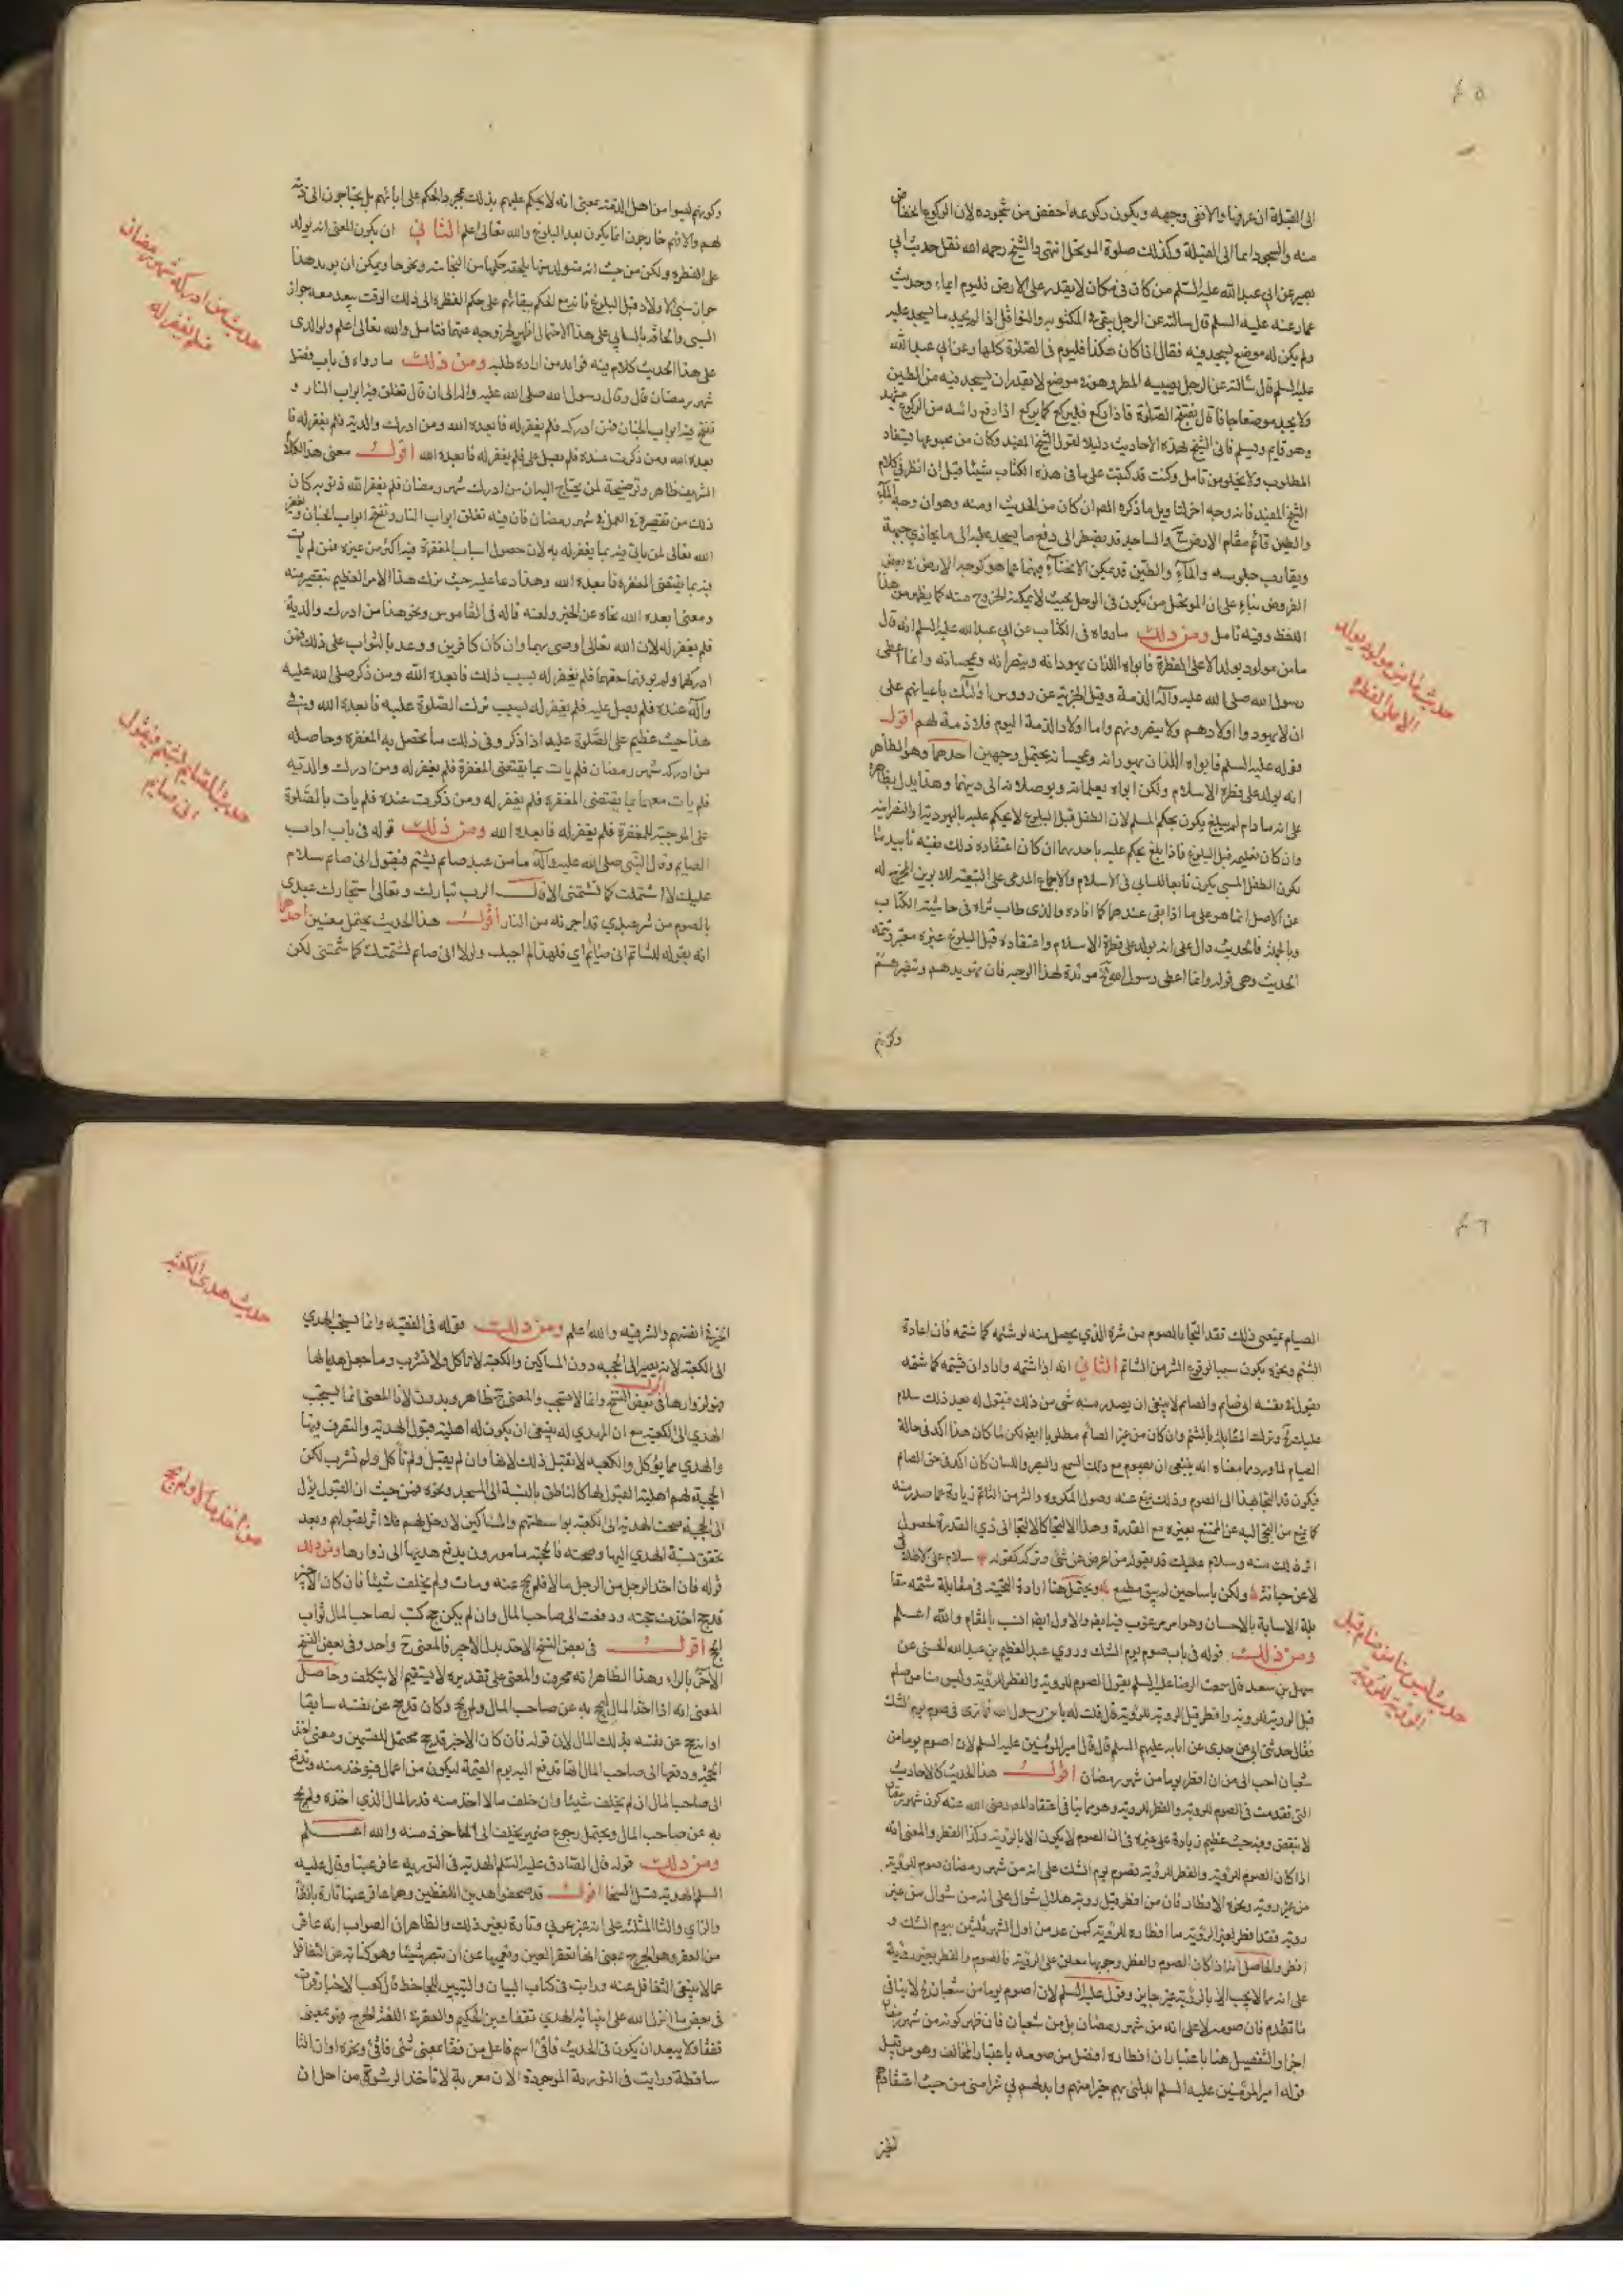 ٤٥
الى القبلة ان عرفها والا ففى وجهه ويكون ركوعه اخفض من سجوده لان الركوع انخفاض
منه والسجود ايما الى القبلة وكذلك صلوة الموتحل انتهى والشيخ رحمه الله نقل حديث ابى
بصير عن ابى عبدالله عليه السلم من كان فى مكان لا يقدر على الارض فليوم ايماء وحديث
عمار عنه عليه السلم قال سالته عن الرجل
ولم يكن له موضع يسجد فيه فقال اذا كان هكذا فليوم فى الصلوة كلها وعن ابى عبدالله
عليه السلم قال سالته عن الرجل يصيبه المطر وهو فى موضع لا يقدر ان يسجد فيه من الطين
ولا يجد موضعا جافا قال يفتتح الصلوة فاذا ركع فليركع كما يركع اذا رفع راسه من الركوع
وهو قايم ويسلم فاتى الشيخ بهذه الاحاديث دليلا لقول الشيخ المفيد وكان من مجموعها يستفاد
المطلوب ولا يخلو من تامل وكنت قد كتبت على ما فى هذه الكتاب شيئا قبل ان انظر فى كلام
الشيخ المفيد
والطين قائم مقام الارض
ويقارب جلوسه والماء والطين قد يمكن الانحناء فيهما
الغروض بناء على ان الموتحل من يكون فى الوحل بحيث لا يمكنه الخروج منه كما يظهر من هذا
اللفظ وفيه تامل ومن ذلك ما رواه فى الكتاب عن ابى عبدالله عليه السلم انه قال
ما من مولود يولد الا على الفطرة فابواه اللذان يهودانه وينصرانه ويمجسانه وانما اعطى
رسول الله صلى الله عليه وآله الذمة وقبل الجزية عن رووس اولئك باعيانهم على
ان لا يهودوا اولادهم ولا ينصرونهم واما اولاد الذمة اليوم فلا ذمة لهم اقول
قوله عليه السلم فابواه اللذان يهودانه ويمجسانه يحتمل وجهين احدهما وهو الظاهر
انه يولد على فطرة الاسلام ولكن ابواه يعلمانه ويوصلانه الى دينهما وهذا يدل بظاهره
على انه ما دام لم يبلغ يكون بحكم المسلم لان الطفل قبل البلوغ لا يحكم عليه باليهودية والنصرانية
وان كان تعليمه قبل البلوغ فاذا بلغ يحكم عليه باحدهما ان كان اعتقاده ذلك ففيه تاييد
يكون الطفل المسبى يكون تابعا للسابى فى الاسلام والاجماع المدعى على التبعية للابوين
عن الاصل انما هو على ما اذا بقى عندهما كما افاده والدى طاب ثراه فى حاشية الكتاب
وبالجملة فالحديث دال على انه يولد على فطرة الاسلام واعتقاده قبل البلوغ غيره معتبر وتتمة
الحديث وهى قوله وانما اعطى رسول الله مؤيدة لهذا الوجه فان تهويدهم وتنصيرهم
وكونهم
حديث ما من مولود يولد
الا على الفطره
وكونهم ليسوا من اهل الذمة بمعنى انه لا يحكم عليهم بذلك بمجرد الحكم على ابائهم بل يحتاجون الى ذمة
لهم والا فهم خارجون انما يكون بعد البلوغ والله تعالى اعلم الثانى ان يكون المعنى انه يولد
على الفطرة ولكن من حيث انه متولد منهما يلحقه حكمها من النجاسة ونحوها ويمكن ان يريد بهذا
جواز سبى الاولاد قبل البلوغ
السبى والحاقه بالسابى على هذا الاحتمال اظهر لخروجه عنهما فتامل والله تعالى اعلم ولوالدى
على هذا الحديث كلام فيه فوايد من اراده طلبه ومن ذلك ما رواه فى باب فضل
شهر رمضان قال وقال رسول الله صلى الله عليه واله الى ان قال تغلق فيه ابواب النار و
تفتح فيه ابواب الجنان فمن ادركه فلم يغفر له فابعده الله ومن ادرك والديه فلم يغفر له فا
بعده الله ومن ذكرت عنده فلم يصل على فلم يغفر له فابعده الله اقول معنى هذا الكلام
الشريف ظاهر وتوضيحه لمن يحتاج اليه ان من ادرك شهر رمضان فلم يغفر الله ذنوبه كان
ذلك من تقصيره فى العمل فى شهر رمضان فان فيه تغلق ابواب النار وتفتح ابواب الجنان ويغفر
الله تعالى لمن ياتى فيه بما يغفر له به لان حصول اسباب المغفرة فيه اكثر من غيره فمن لم يات
فيه بما يقتضى المغفرة فابعده الله وهذا دعا عليه حيث ترك هذا الامر العظيم بتقصير منه
ومعنى ابعده الله نحاه عن الخير ولعنه قاله فى القاموس ونحو هذا من ادرك والديه
فلم يغفر له لان الله تعالى اوصى بهما وان كانا كافرين ووعد بالثواب على ذلك فمن
ادركهما ولم يوفهما حقهما فلم يغفر له بسبب ذلك فابعده الله ومن ذكر صلى الله عليه
وآله عنده فلم يصل عليه فلم يغفر له بسبب ترك الصلوة عليه فابعده الله وفى
هذا حث عظيم على الصلوة عليه اذا ذكر وفى ذلك ما يحصل به المغفرة وحاصله
من ادركه شهر رمضان فلم يات بما يقتضى المغفرة فلم يغفر له ومن ادرك والديه
فلم يات معهما بما يقتضى المغفره فلم يغفر له ومن ذكرت عنده فلم يات بالصلوة
على الموجبة للمغفرة فلم يغفر له فابعده الله ومن ذلك قوله فى باب اداب
الصايم وقال النبى صلى الله عليه وآله ما من عبد صايم يشتم فيقول انى صايم سلام
عليك لا اشتمك كما شتمتنى الا قال الرب تبارك وتعالى استجارك عبدى
بالصوم من شر عبدى قد اجرته من النار اقول هذا الحديث يحتمل معنيين احدهما
انه يقوله للشاتم انى صايم اى فلهذا لم اجبك ولولا انى صايم لشتمتك كما شتمتنى لكن
حديث من ادركه شهر رمضان
فلم يغفر له
حديث الصايم يشتم فيقول
انى صايم
٤٦
الصيام يمنعنى ذلك فقد التجا بالصوم من شره الذى يحصل منه لو شتمه كما شتمه فان اعادة
الشتم ونحوه يكون سببا لوقوع الشر من الشاتم الثانى انه اذا شتمه واراد ان يشتمه كما شتمه
يقول فى نفسه انى صايم والصايم لا ينبغى ان يصدر منه شى من ذلك فيقول له بعد ذلك سلام
عليك وترك المقابلة بالشتم وان كان من غير الصائم مطلوبا ايضا لكن لما كان هذا اكد فى حالة
الصيام لما ورد ما معناه انه ينبغى ان يصوم مع ذلك السمع والبصر واللسان كان اكد فى حق الصايم
فيكون قد التجا بهذا الى الصوم وذلك يمنع عنه وصول المكروه والشر من الشاتم زيادة عما صدر منه
كما يمنع من التجى اليه عن الممتنع بعزه مع القدرة وهذا الالتجا كالالتجا الى ذى القدرة لحصول
اثر ذلك منه وسلام عليك قد يقوله من اعرض عن شى وتركه كقوله سلام على
لا عن جنابة ولكن ياسا حين لم يبق مطمع ويحتمل هنا ارادة التحية فى مقابلة شتمه مقا
بلة الاساءة بالاحسان وهو امر مرغوب فيه ايضا والاول ايضا انسب بالمقام والله اعلم
ومن ذلك قوله فى باب صوم يوم الشك وروى عبد العظيم بن عبدالله الحسنى عن
سهل بن سعد قال سمعت الرضا عليه السلم يقول الصوم للرويه والفطر للرؤية وليس منا من صام
قبل الروية للرويه وافطر قبل الرويه للرؤية قال قلت له يابن رسول الله فما ترى فى صوم يوم الشك
فقال حدثنى ابى عن جدى عن ابايه عليهم السلم قال قال امير المؤمنين عليه السلم لان اصوم يوما من
شعبان احب الى من ان افطر يوما من شهر رمضان اقول هذا الحديث كالاحاديث
التى تقدمت فى الصوم للروية والفطر للروية وهو مما ينافى اعتقاد المصه رضى الله عنه كون شهر رمضان
لا ينقص وفيه حث عظيم زيادة على غيره فى ان الصوم لا يكون الا بالروية وكذا الفطر والمعنى انه
اذا كان الصوم للروية والفطر للرؤية فصوم يوم الشك على انه من شهر رمضان صوم للرؤية
من غير روية ونحوه الافطار فان من افطر قبل رويه هلال شوال على انه من شوال من غير
رويه فقد افطر لغير الرؤية
افطر والحاصل انه اذا كان الصوم والفطر وجوبهما معلق على الروية فالصوم والفطر بغير رؤية
على انه مما لا يجب الا بالرؤية غير جايز وقول عليه السلم لان اصوم يوما من شعبان لا ينافى
ما تقدم فان صومه لا على انه من شهر رمضان بل من شعبان فان ظهر كونه من شهر رمضان
اجزا والتفضيل هنا باعتبار ان افطاره افضل من صومه باعتبار المخالف وهو من قبيل
قوله امير المؤمنين عليه السلم ابدلنى بهم خيرا منهم وابدلهم بى شرا منى من حيث اعتقادهم
الخير
حديث ليس منا من صام قبل
الرؤية للروية
الخير فى انفسهم والشر فيه والله اعلم ومن ذلك قوله فى الفقيه وانما يستحب الهدى
الى الكعبة لانه يصير الى الحجبه دون المساكين والكعبة لا تاكل ولا تشرب وما جعل هديا لها
فهو لزوارها اقول فى بعض النسخ وانما لا يستحب والمعنى ح ظاهر وبدون لا فالمعنى انما يستحب
الهدى الى الكعبة مع ان المهدى له ينبغى ان يكون له اهلية قبول الهدية والتصرف فيها
والهدى مما يوكل والكعبه لا تقبل ذلك لانها وان لم يقبل ولم تاكل ولم تشرب لكن
الحجبة لهم اهلية القبول لها كالناظر بالنسبة الى المسجد ونحوه فمن حيث ان القبول يؤل
الى الحجبة صحت الهدية الى الكعبة بواسطتهم والمساكين لا دخل لهم فلا اثر لقبولهم وبعد
تحقق نسبة الهدى اليها وصحته فالحجبة مامورون بدفع هديها الى زوارها ومن ذلك
قوله فان اخذ الرجل من الرجل مالا فلم يحج عنه ومات ولم يخلف شيئا فان كان الاجير
قد حج اخذت حجته ودفعت الى صاحب المال وان لم يكن حج كتب لصاحب المال ثواب
الحج اقول فى بعض النسخ الاخذ بدل الاجير فالمعنى ح واحد وفى بعض النسخ
الاخر بالراء وهذا الظاهر انه محرف والمعنى على تقديره لا يستقيم الا بتكلف وحاصل
المعنى انه اذا اخذ المال ليحج به عن صاحب المال ولم يحج وكان قد حج عن نفسه سابقا
او انه حج عن نفسه بذلك المال لان قوله فان كان الاجير قد حج محتمل للقسمين ومعنى اخذ
الحجة ودفعها الى صاحب المال انها تدفع اليه يوم القيمة ليكون من اعماله فيوخذ منه وتدفع
الى صاحب المال ان لم يخلف شيئا وان خلف مالا اخذ منه قدر المال الذى اخذه ولم يحج
به عن صاحب المال ويحتمل رجوع ضمير يخلف الى الماخوذ منه والله اعلم
ومن ذلك قوله قال الصادق عليه السلم الهدية فى التوريه عافر عينا وقال عليه
السلم الهديه تسل السخا اقول قد صحفوا هذين اللفظين وهما عافر عينا تارة بالفاء
والزاى والثا المثلثة على انه غير عربى وتارة بغير ذلك والظاهر ان الصواب انه عاقر
من العقر وهو الجرح بمعنى انها تعقر العين وتعميها عن ان تبصر شيئا وهو كناية عن التغافل
عما لا ينبغى التغافل عنه ورايت فى كتاب البيان والتبيين للجاحظ قال كعب الاحبار قرات
فى بعض ما انزل الله على انبيائه الهدى تفقا عين الحكيم والعقر فى اللغة الجرح فهو بمعنى
تفقا فلا يبعد ان يكون فى الحديث فاقئ اسم فاعل من فقا بمعنى شئ فاقئ ونحوه او ان التا
ساقطة ورايت فى التورية الموجودة الان معربة لا تاخذ الرشوة من احد ان
حديث هدى الكعبه
من اخذ مالا ولم يحج